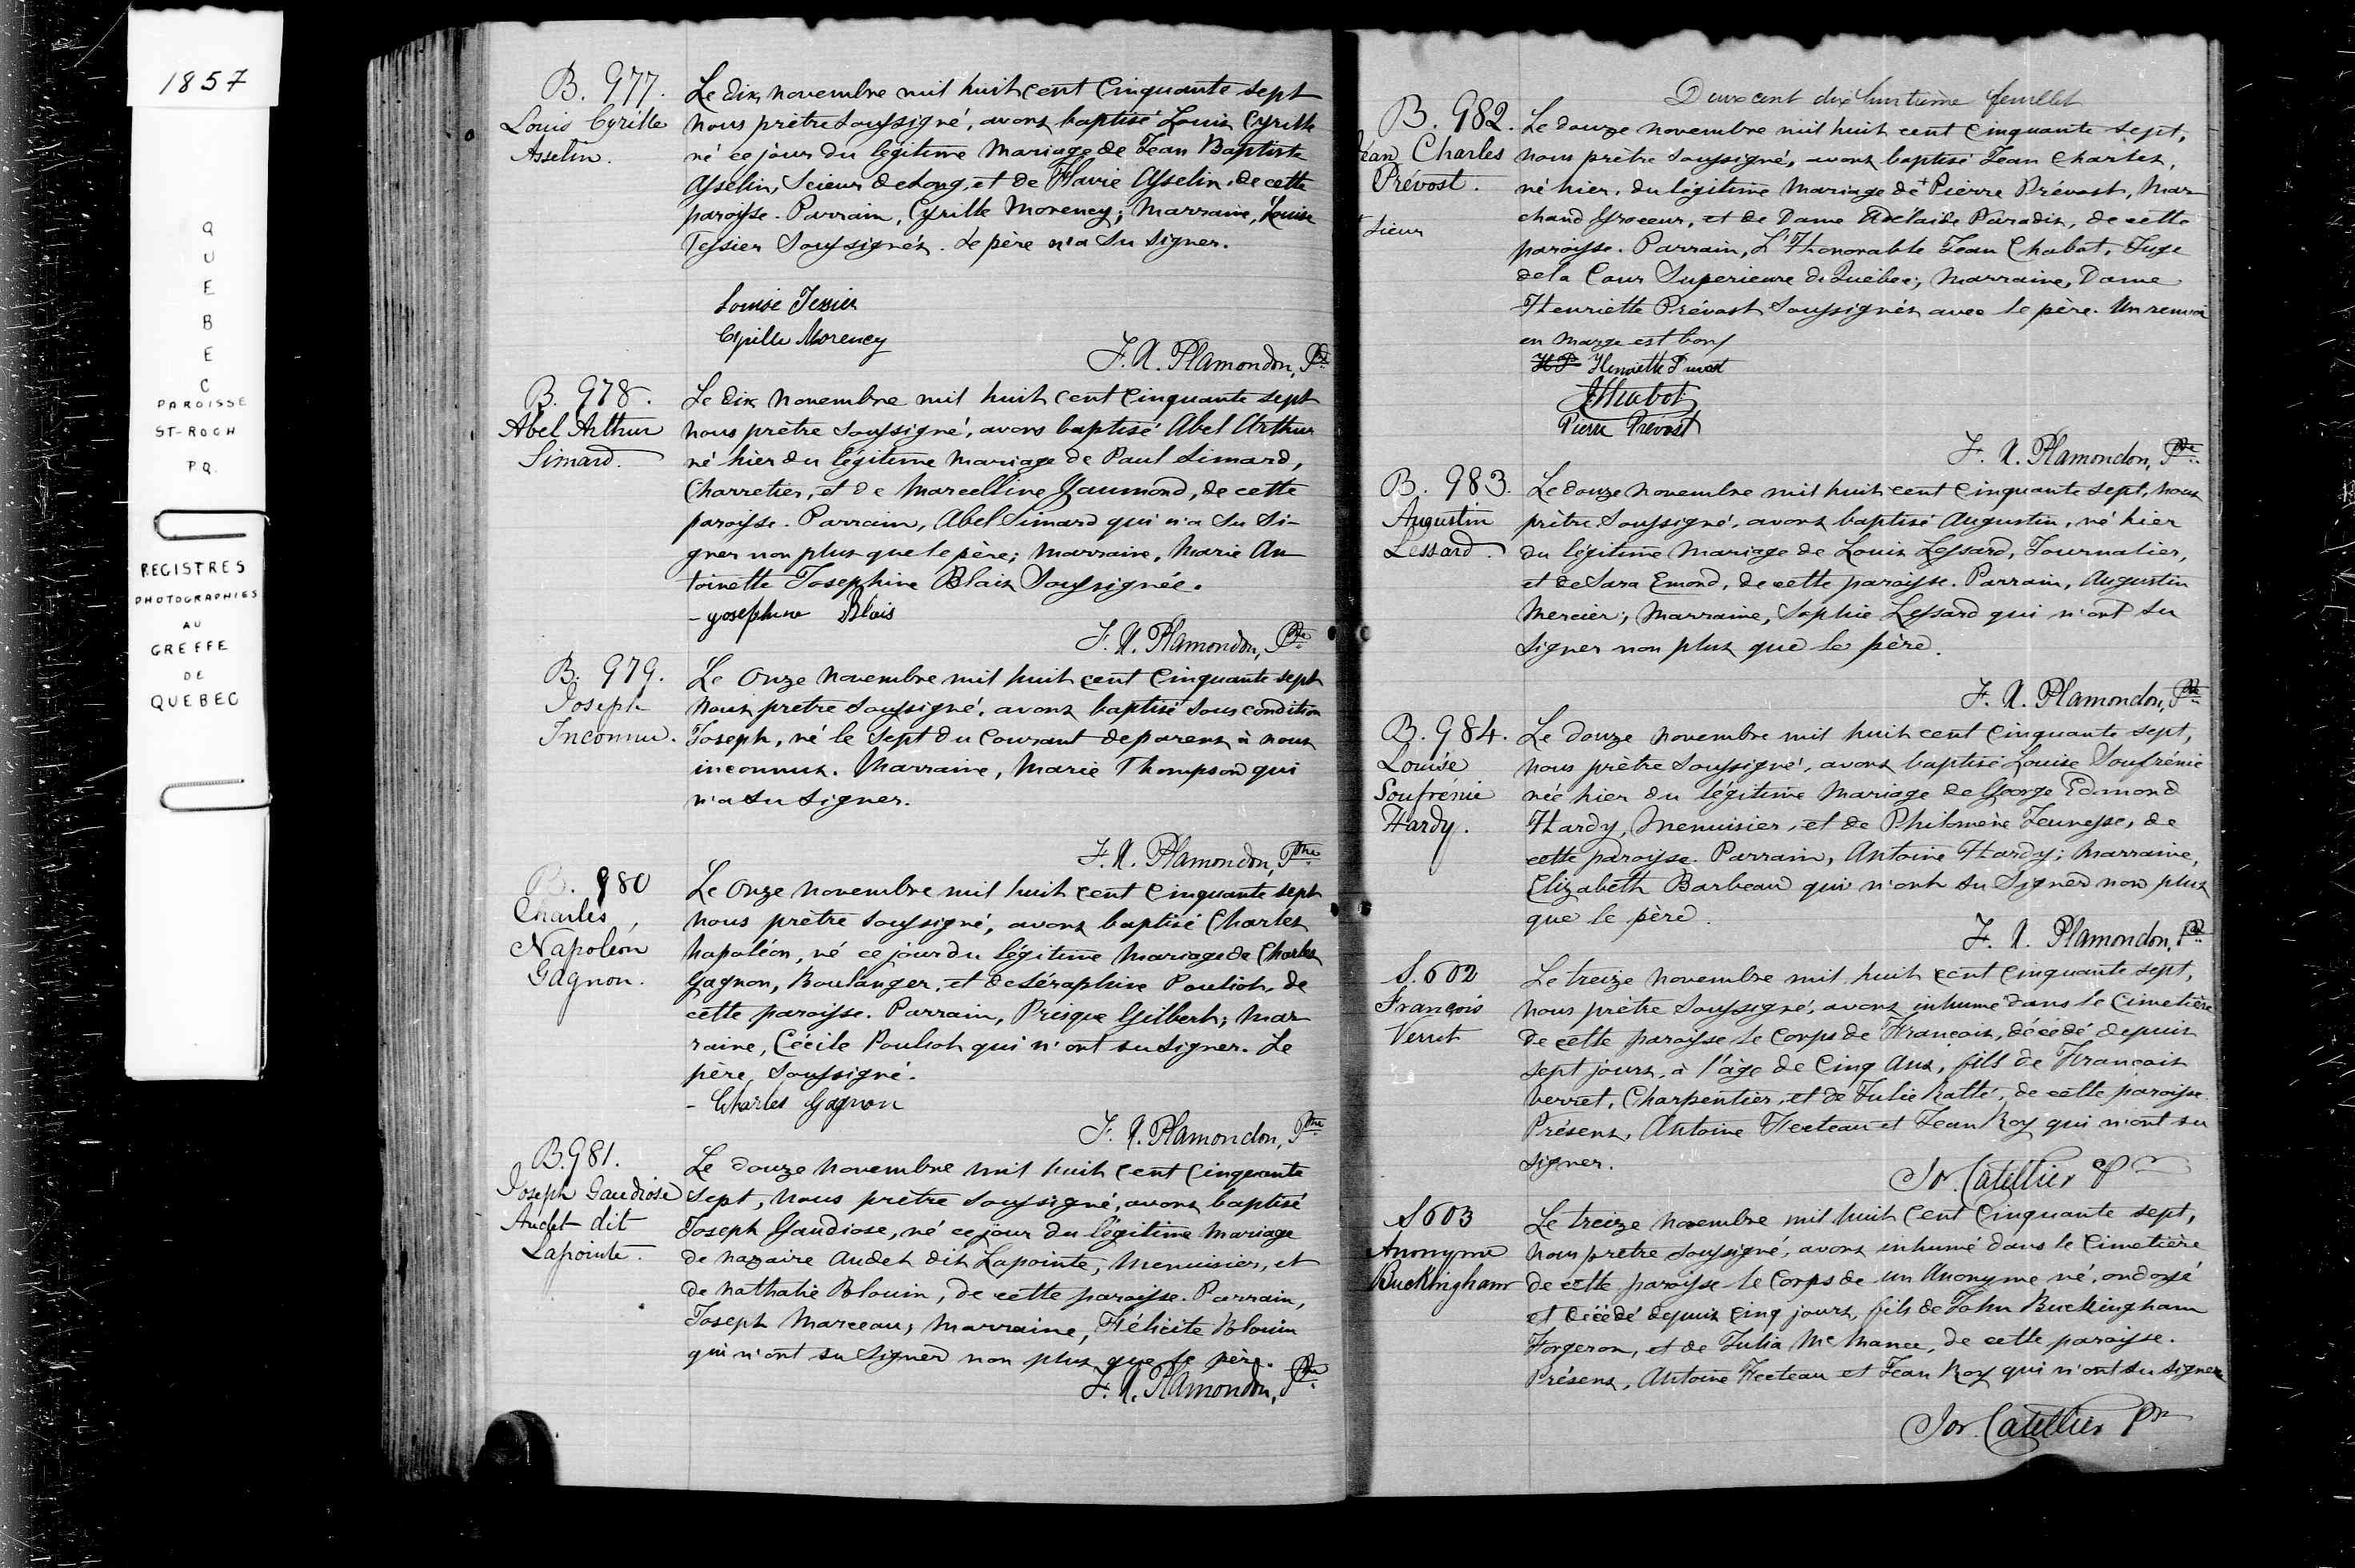 1857
QUEBEC
PAROISSE
ST-ROCH
P.Q.
REGISTRES
PHOTOGRAPHIES
AU
GREFFE
DE
QUEBEC
B. 977.
Louis Cyrille
Asselin.
Le dix novembre mil huit cent cinquante sept
nous prêtre soussigné, avons baptisé Louis Cyrille
né ce jour du légitime mariage de Jean Baptiste
Asselin, Scieur de long, et de Flavie Asselin, de cette
paroisse. Parrain, Cyrille Morency; Marraine, Louise
Tessier soussignés. Le père n'a su signer.
Louise Tessier
Cyrille Morency
F. X. Plamondon, Ptre
B. 978.
Abel Arthur
Simard.
Le dix novembre mil huit cent cinquante sept
nous prêtre soussigné, avons baptisé Abel Arthur
né hier du légitime mariage de Paul Simard,
Charretier, et de Marcelline Jaumond, de cette
paroisse. Parrain, Abel Simard qui n'a su si-
gner non plus que le père; marraine, Marie An
toinette Josephine Blais soussignée.
- josephine Blais
F. X. Plamondon, Ptre
B. 979.
Joseph
Inconnu.
Le onze novembre mil huit cent cinquante sept
nous prêtre soussigné, avons baptisé sous condition
Joseph, né le sept du courant de parens à nous
inconnus. Marraine, Marie Thompson qui
n'a su signer.
F. X. Plamondon, Ptre
B. 980
Charles
Napoléon
Gagnon.
Le onze novembre mil huit cent cinquante sept
nous prêtre soussigné, avons baptisé Charles
Napoléon, né ce jour du légitime mariage de Charles
Gagnon, Boulanger, et de Séraphine Pouliot, de
cette paroisse. Parrain, Prisque Gilbert; Mar
raine, Cécile Pouliot qui n'ont su signer. Le
père soussigné.
- Charles Gagnon
F. X. Plamondon, Ptre
B. 981.
Joseph Gaudiose
Audet dit
Lapointe.
Le douze novembre mil huit cent cinquante
sept, nous prêtre soussigné, avons baptisé
Joseph Gaudiose, né ce jour du légitime mariage
de Nazaire Audet dit Lapointe, Menuisier, et
de Nathalie Blouin, de cette paroisse. Parrain,
Joseph Marceau; marraine, Félicité Blouin
qui n'ont su signer non plus que le père.
F. X. Plamondon, Ptre
Deux cent dix huitième feuillet
B. 982.
Jean Charles
Prévost.
+ Sieur
Le douze novembre mil huit cent cinquante sept,
nous prêtre soussigné, avons baptisé Jean Charles,
né hier, du légitime mariage de + Pierre Prévost, Mar
chand Groceur, et de Dame Adelaïde Paradis, de cette
paroisse. Parrain, L'Honorable Jean Chabot, Juge
de la Cour Superieure de Québec; marraine, Dame
Henriette Prévost soussignés avec le père. Un renvoi
en marge est bon
H P Henriette Prévost
J Chabot
Pierre Prévost
F. X. Plamondon, Ptre
B. 983.
Augustin
Lessard.
Le douze novembre mil huit cent cinquante sept, nous
prêtre soussigné, avons baptisé Augustin, né hier
du légitime mariage de Louis Lessard, Journalier,
et de Sara Emond, de cette paroisse. Parrain, Augustin
Mercier; marraine, Sophie Lessard qui n'ont su
signer non plus que le père.
F. X. Plamondon, Ptre
B. 984.
Louise
Soufrénie
Hardy.
Le douze novembre mil huit cent cinquante sept,
nous prêtre soussigné, avons baptisé Louise Soufrénie
née hier du légitime mariage de George Edmond
Hardy, Menuisier, et de Philomène Jeunesse, de
cette paroisse. Parrain, Antoine Hardy; marraine,
Elizabeth Barbeau qui n'ont su signer non plus
que le père.
F. X. Plamondon, Ptre
S. 602
François
Verret
Le treize novembre mil huit cent cinquante sept,
nous prêtre soussigné, avons inhumé dans le cimetière
de cette paroisse le corps de François, décédé depuis
sept jours, à l'âge de cinq ans, fils de François
Verret, Charpentier, et de Julie Ratté, de cette paroisse.
Présens, Antoine Fecteau et Jean Roy qui n'ont su
signer.
Jos. Catellier Ptre
S 603
Anonyme
Buckingham
Le treize novembre mil huit cent cinquante sept,
nous prêtre soussigné, avons inhumé dans le cimetière
de cette paroisse le corps de un anonyme né, ondoyé
et décédé depuis cinq jours, fils de John Buckingham
Forgeron, et de Julia McManee, de cette paroisse.
Présens, Antoine Fecteau et Jean Roy qui n'ont su signer
Jos. Catellier Ptre